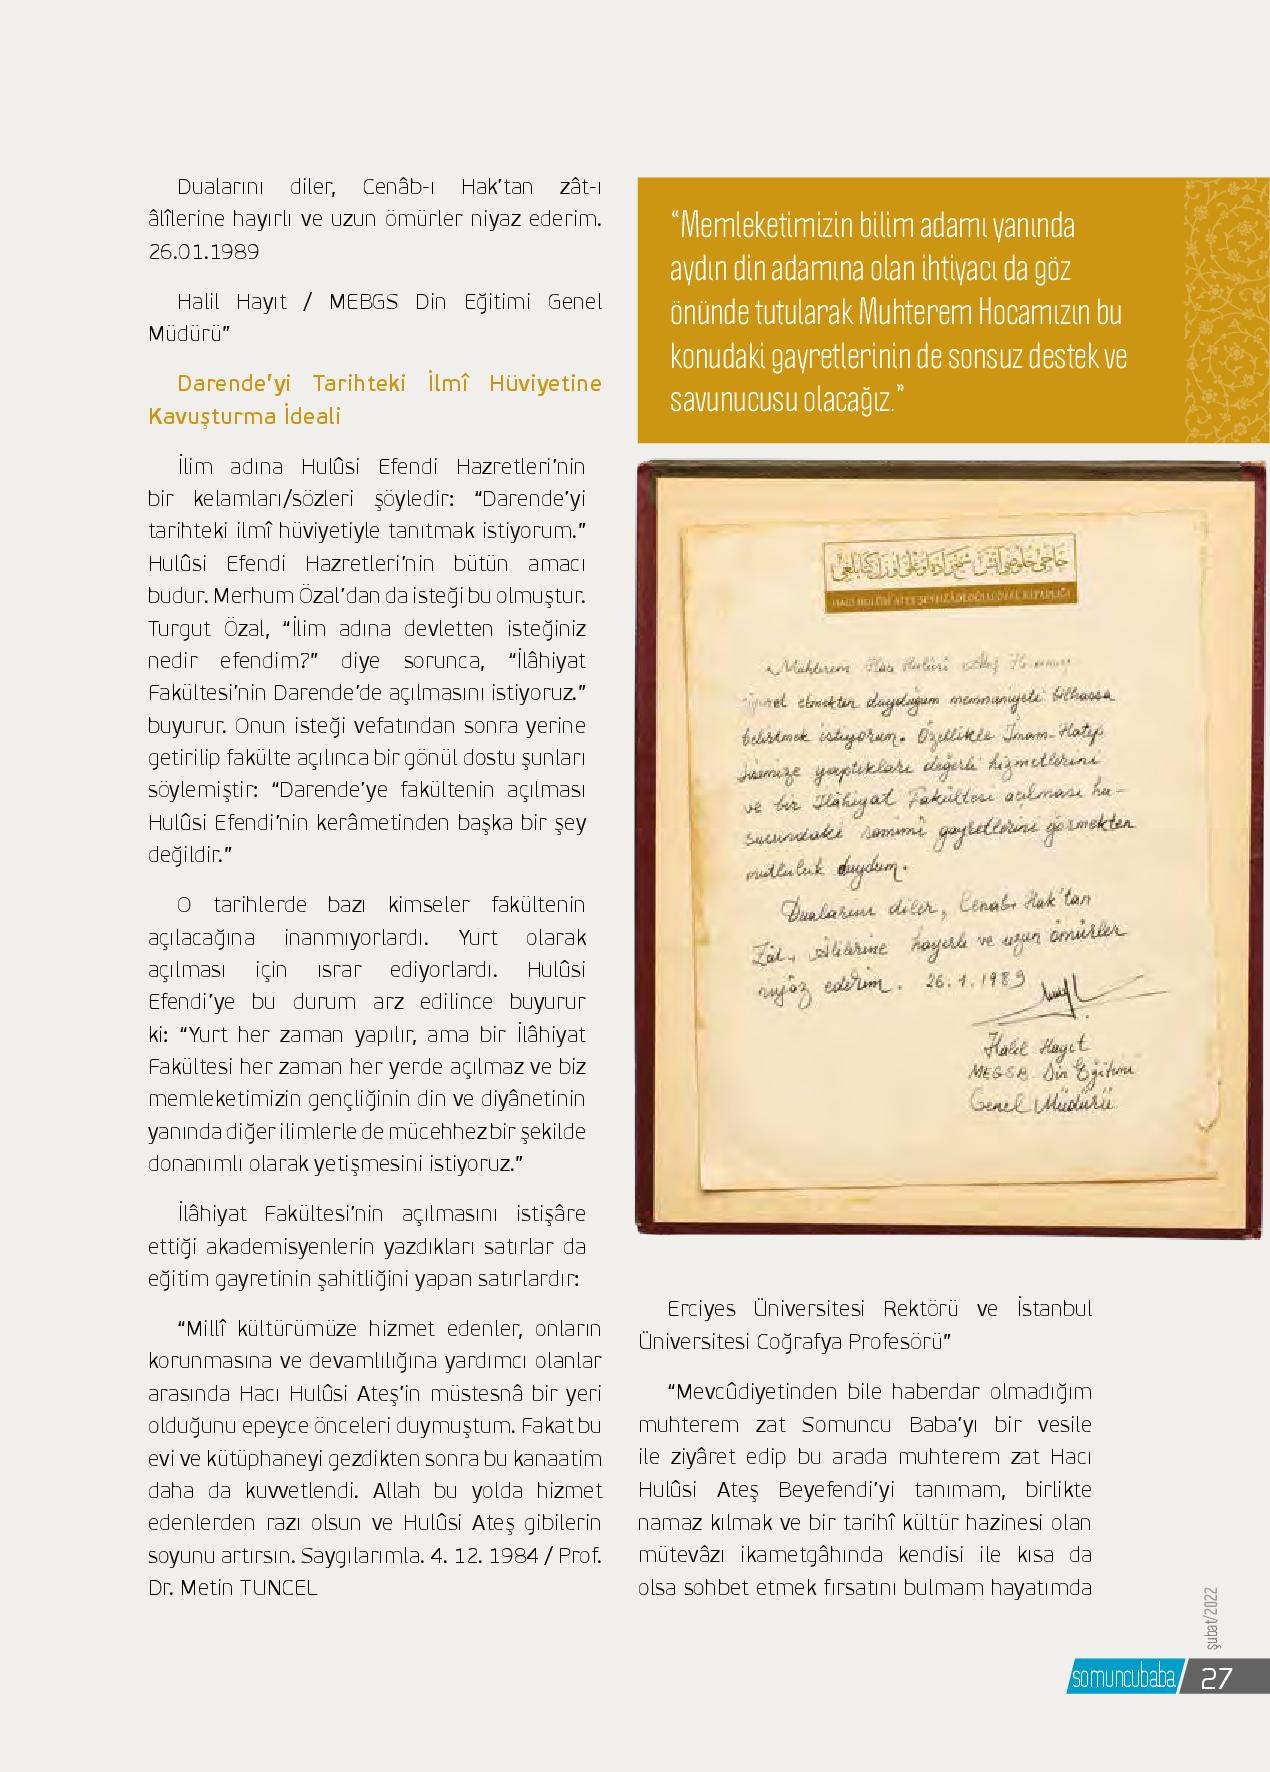 Dualarını diler, Cenâb-ı Hak’tan zât-ı
âlîlerine hayırlı ve uzun ömürler niyaz ederim.
26.01.1989
Halil Hayıt / MEBGS Din Eğitimi Genel
Müdürü”
Darende’yi Tarihteki İlmî Hüviyetine
Kavuşturma İdeali
İlim adına Hulûsi Efendi Hazretleri’nin
bir kelamları/sözleri şöyledir: “Darende’yi
tarihteki ilmî hüviyetiyle tanıtmak istiyorum.”
Hulûsi Efendi Hazretleri’nin bütün amacı
budur. Merhum Özal’dan da isteği bu olmuştur.
Turgut Özal, “İlim adına devletten isteğiniz
nedir efendim?” diye sorunca, “İlâhiyat
Fakültesi’nin Darende’de açılmasını istiyoruz.”
buyurur. Onun isteği vefatından sonra yerine
getirilip fakülte açılınca bir gönül dostu şunları
söylemiştir: “Darende’ye fakültenin açılması
Hulûsi Efendi’nin kerâmetinden başka bir şey
değildir.”
O tarihlerde bazı kimseler fakültenin
açılacağına inanmıyorlardı. Yurt olarak
açılması için ısrar ediyorlardı. Hulûsi
Efendi’ye bu durum arz edilince buyurur
ki: “Yurt her zaman yapılır, ama bir İlâhiyat
Fakültesi her zaman her yerde açılmaz ve biz
memleketimizin gençliğinin din ve diyânetinin
yanında diğer ilimlerle de mücehhez bir şekilde
donanımlı olarak yetişmesini istiyoruz.”
İlâhiyat Fakültesi’nin açılmasını istişâre
ettiği akademisyenlerin yazdıkları satırlar da
eğitim gayretinin şahitliğini yapan satırlardır:
“Millî kültürümüze hizmet edenler, onların
korunmasına ve devamlılığına yardımcı olanlar
arasında Hacı Hulûsi Ateş’in müstesnâ bir yeri
olduğunu epeyce önceleri duymuştum. Fakat bu
evi ve kütüphaneyi gezdikten sonra bu kanaatim
daha da kuvvetlendi. Allah bu yolda hizmet
edenlerden razı olsun ve Hulûsi Ateş gibilerin
soyunu artırsın. Saygılarımla. 4. 12. 1984 / Prof.
Dr. Metin TUNCEL
“Memleketimizin bilim adamı yanında
aydın din adamına olan ihtiyacı da göz
önünde tutularak Muhterem Hocamızın bu
konudaki gayretlerinin de sonsuz destek ve
savunucusu olacağız.”
HACI HULÛSİ ATEŞ ŞEYHZÂDEOĞLU ÖZEL KİTAPLIĞI
Muhterem Hacı Hulûsî Ateş
etmekten duyduğum memnuniyeti bilhassa
belirtmek istiyorum. Özellikle İmam-Hatip
Lisemize yaptıkları değerli hizmetlerini
ve bir İlâhiyat Fakültesi açılması hu-
susundaki samimî gayretlerini görmekten
mutluluk duydum.
Dualarını diler, Cenab-ı Hak'tan
Zât-ı Âlilerine hayırlı ve uzun ömürler
niyâz ederim. 26.1.1989
Halil Hayıt
MEGSB. Din Eğitimi
Genel Müdürü
Erciyes Üniversitesi Rektörü ve İstanbul
Üniversitesi Coğrafya Profesörü”
“Mevcûdiyetinden bile haberdar olmadığım
muhterem zat Somuncu Baba’yı bir vesile
ile ziyâret edip bu arada muhterem zat Hacı
Hulûsi Ateş Beyefendi’yi tanımam, birlikte
namaz kılmak ve bir tarihî kültür hazinesi olan
mütevâzı ikametgâhında kendisi ile kısa da
olsa sohbet etmek fırsatını bulmam hayatımda
şubat/2022
somuncubaba 27